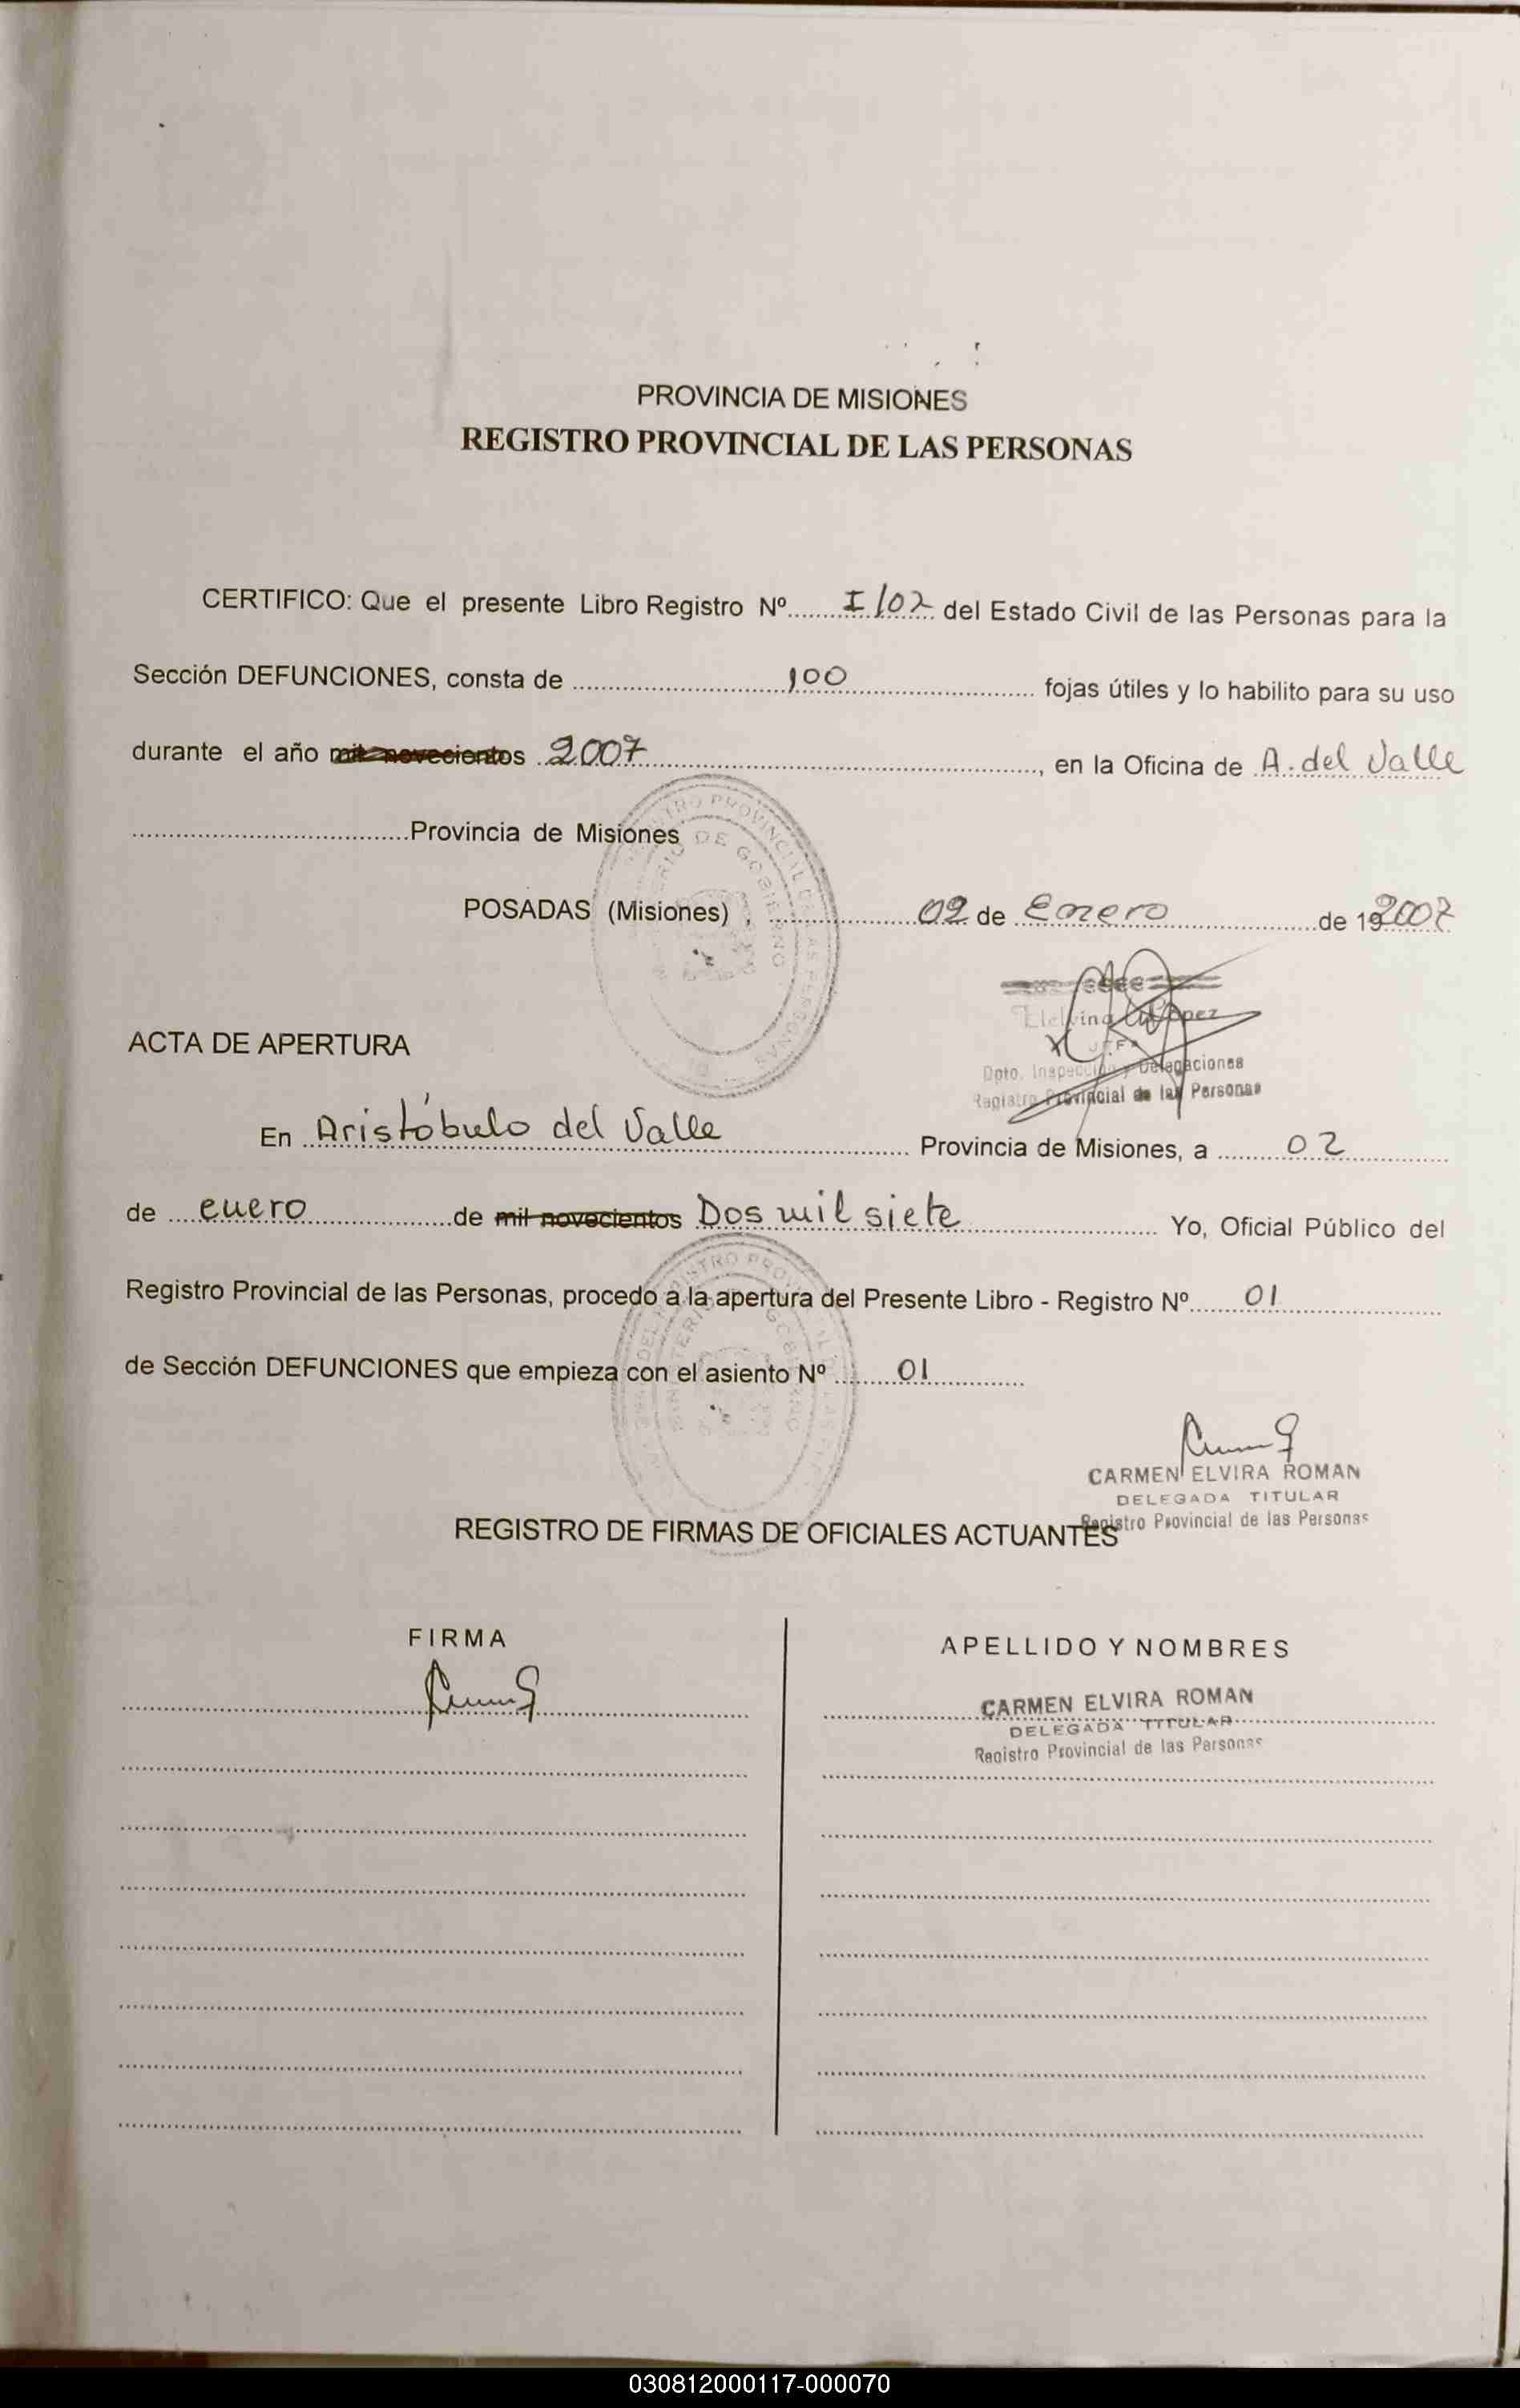 PROVINCIA DE MISIONES
REGISTRO PROVINCIAL DE LAS PERSONAS
CERTIFICO: Que el presente Libro Registro Nº I/02 del Estado Civil de las Personas para la
Sección DEFUNCIONES, consta de 100 fojas útiles y lo habilito para su uso
durante el año mil novecientos 2007, en la Oficina de A. del Valle
Provincia de Misiones
POSADAS (Misiones), 02 de Enero de 192007
JEFA
Dpto. Inspección y Delegaciones
Registro Provincial de las Personas
ACTA DE APERTURA
En Aristóbulo del Valle Provincia de Misiones, a 02
de enero de mil novecientos Dos mil siete Yo, Oficial Público del
Registro Provincial de las Personas, procedo a la apertura del Presente Libro - Registro Nº 01
de Sección DEFUNCIONES que empieza con el asiento Nº 01
CARMEN ELVIRA ROMAN
DELEGADA TITULAR
Registro Provincial de las Personas
REGISTRO DE FIRMAS DE OFICIALES ACTUANTES
FIRMA
APELLIDO Y NOMBRES
CARMEN ELVIRA ROMAN
DELEGADA TITULAR
Registro Provincial de las Personas
030812000117-000070